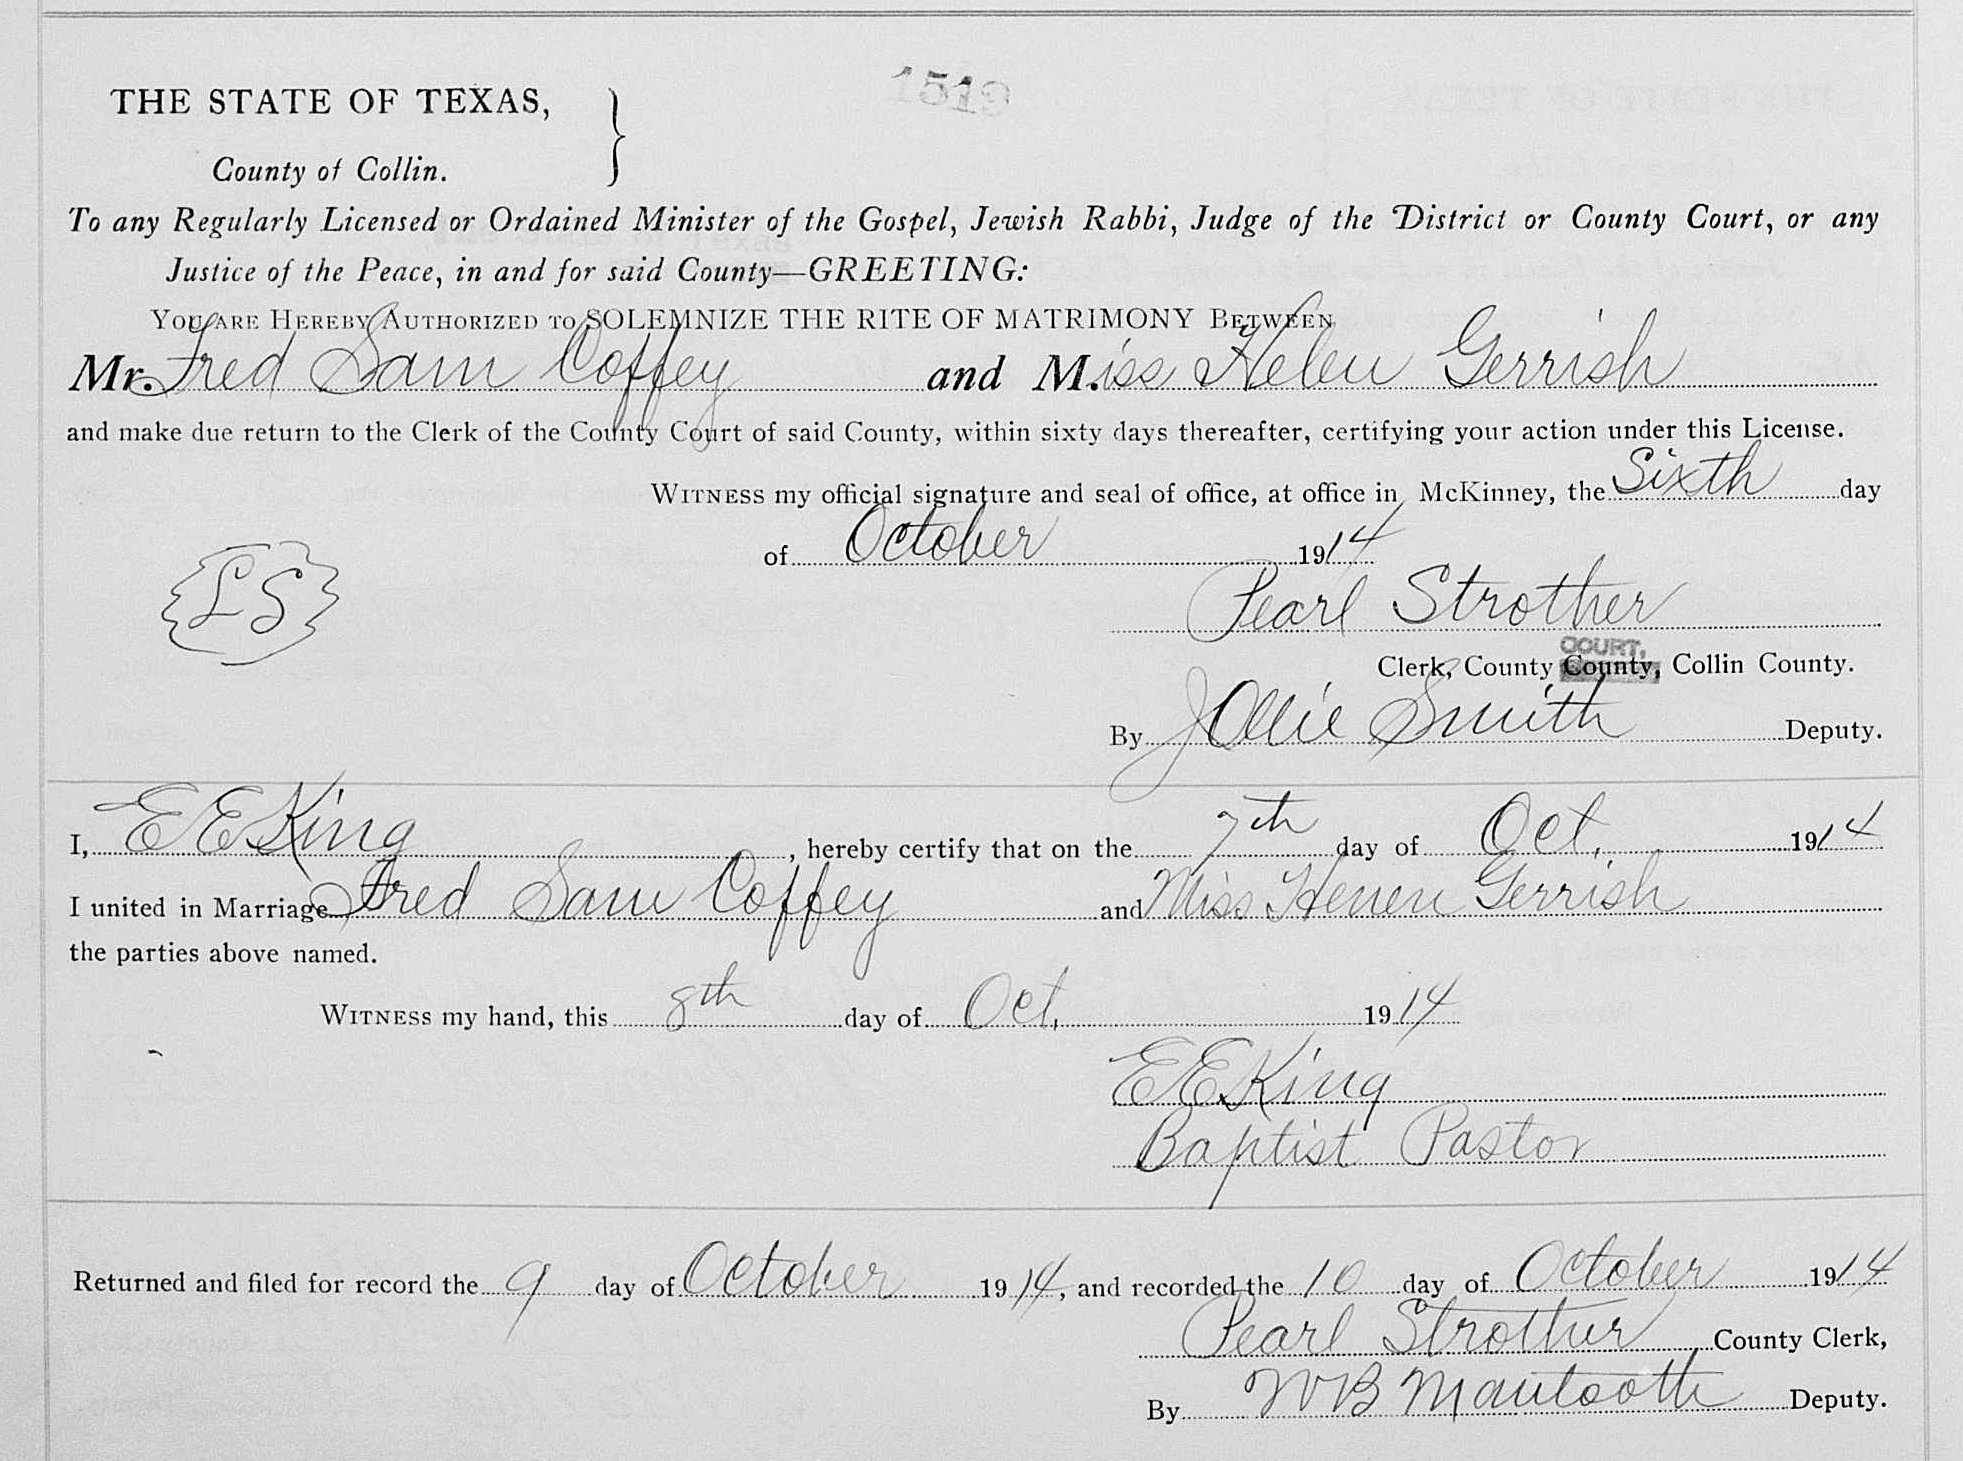 1519
THE STATE OF TEXAS,
County of Collin.
To any Regularly Licensed or Ordained Minister of the Gospel, Jewish Rabbi, Judge of the District or County Court, or any
Justice of the Peace, in and for said County—GREETING:
YOU ARE HEREBY AUTHORIZED TO SOLEMNIZE THE RITE OF MATRIMONY BETWEEN
Mr. Fred Sam Coffey and M.iss Helen Gerrish
and make due return to the Clerk of the County Court of said County, within sixty days thereafter, certifying your action under this License.
WITNESS my official signature and seal of office, at office in McKinney, the Sixth day
of October 1914
LS
Pearl Strother
COURT,
Clerk, County County, Collin County.
By Jollie Smith Deputy.
I, E E King, hereby certify that on the 7th day of Oct. 1914
I united in Marriage Fred Sam Coffey and Miss Henen Gerrish
the parties above named.
WITNESS my hand, this 8th day of Oct. 1914
E E King
Baptist Pastor
Returned and filed for record the 9 day of October 1914, and recorded the 10 day of October 1914
Pearl Strother County Clerk,
By W B Mantooth Deputy.